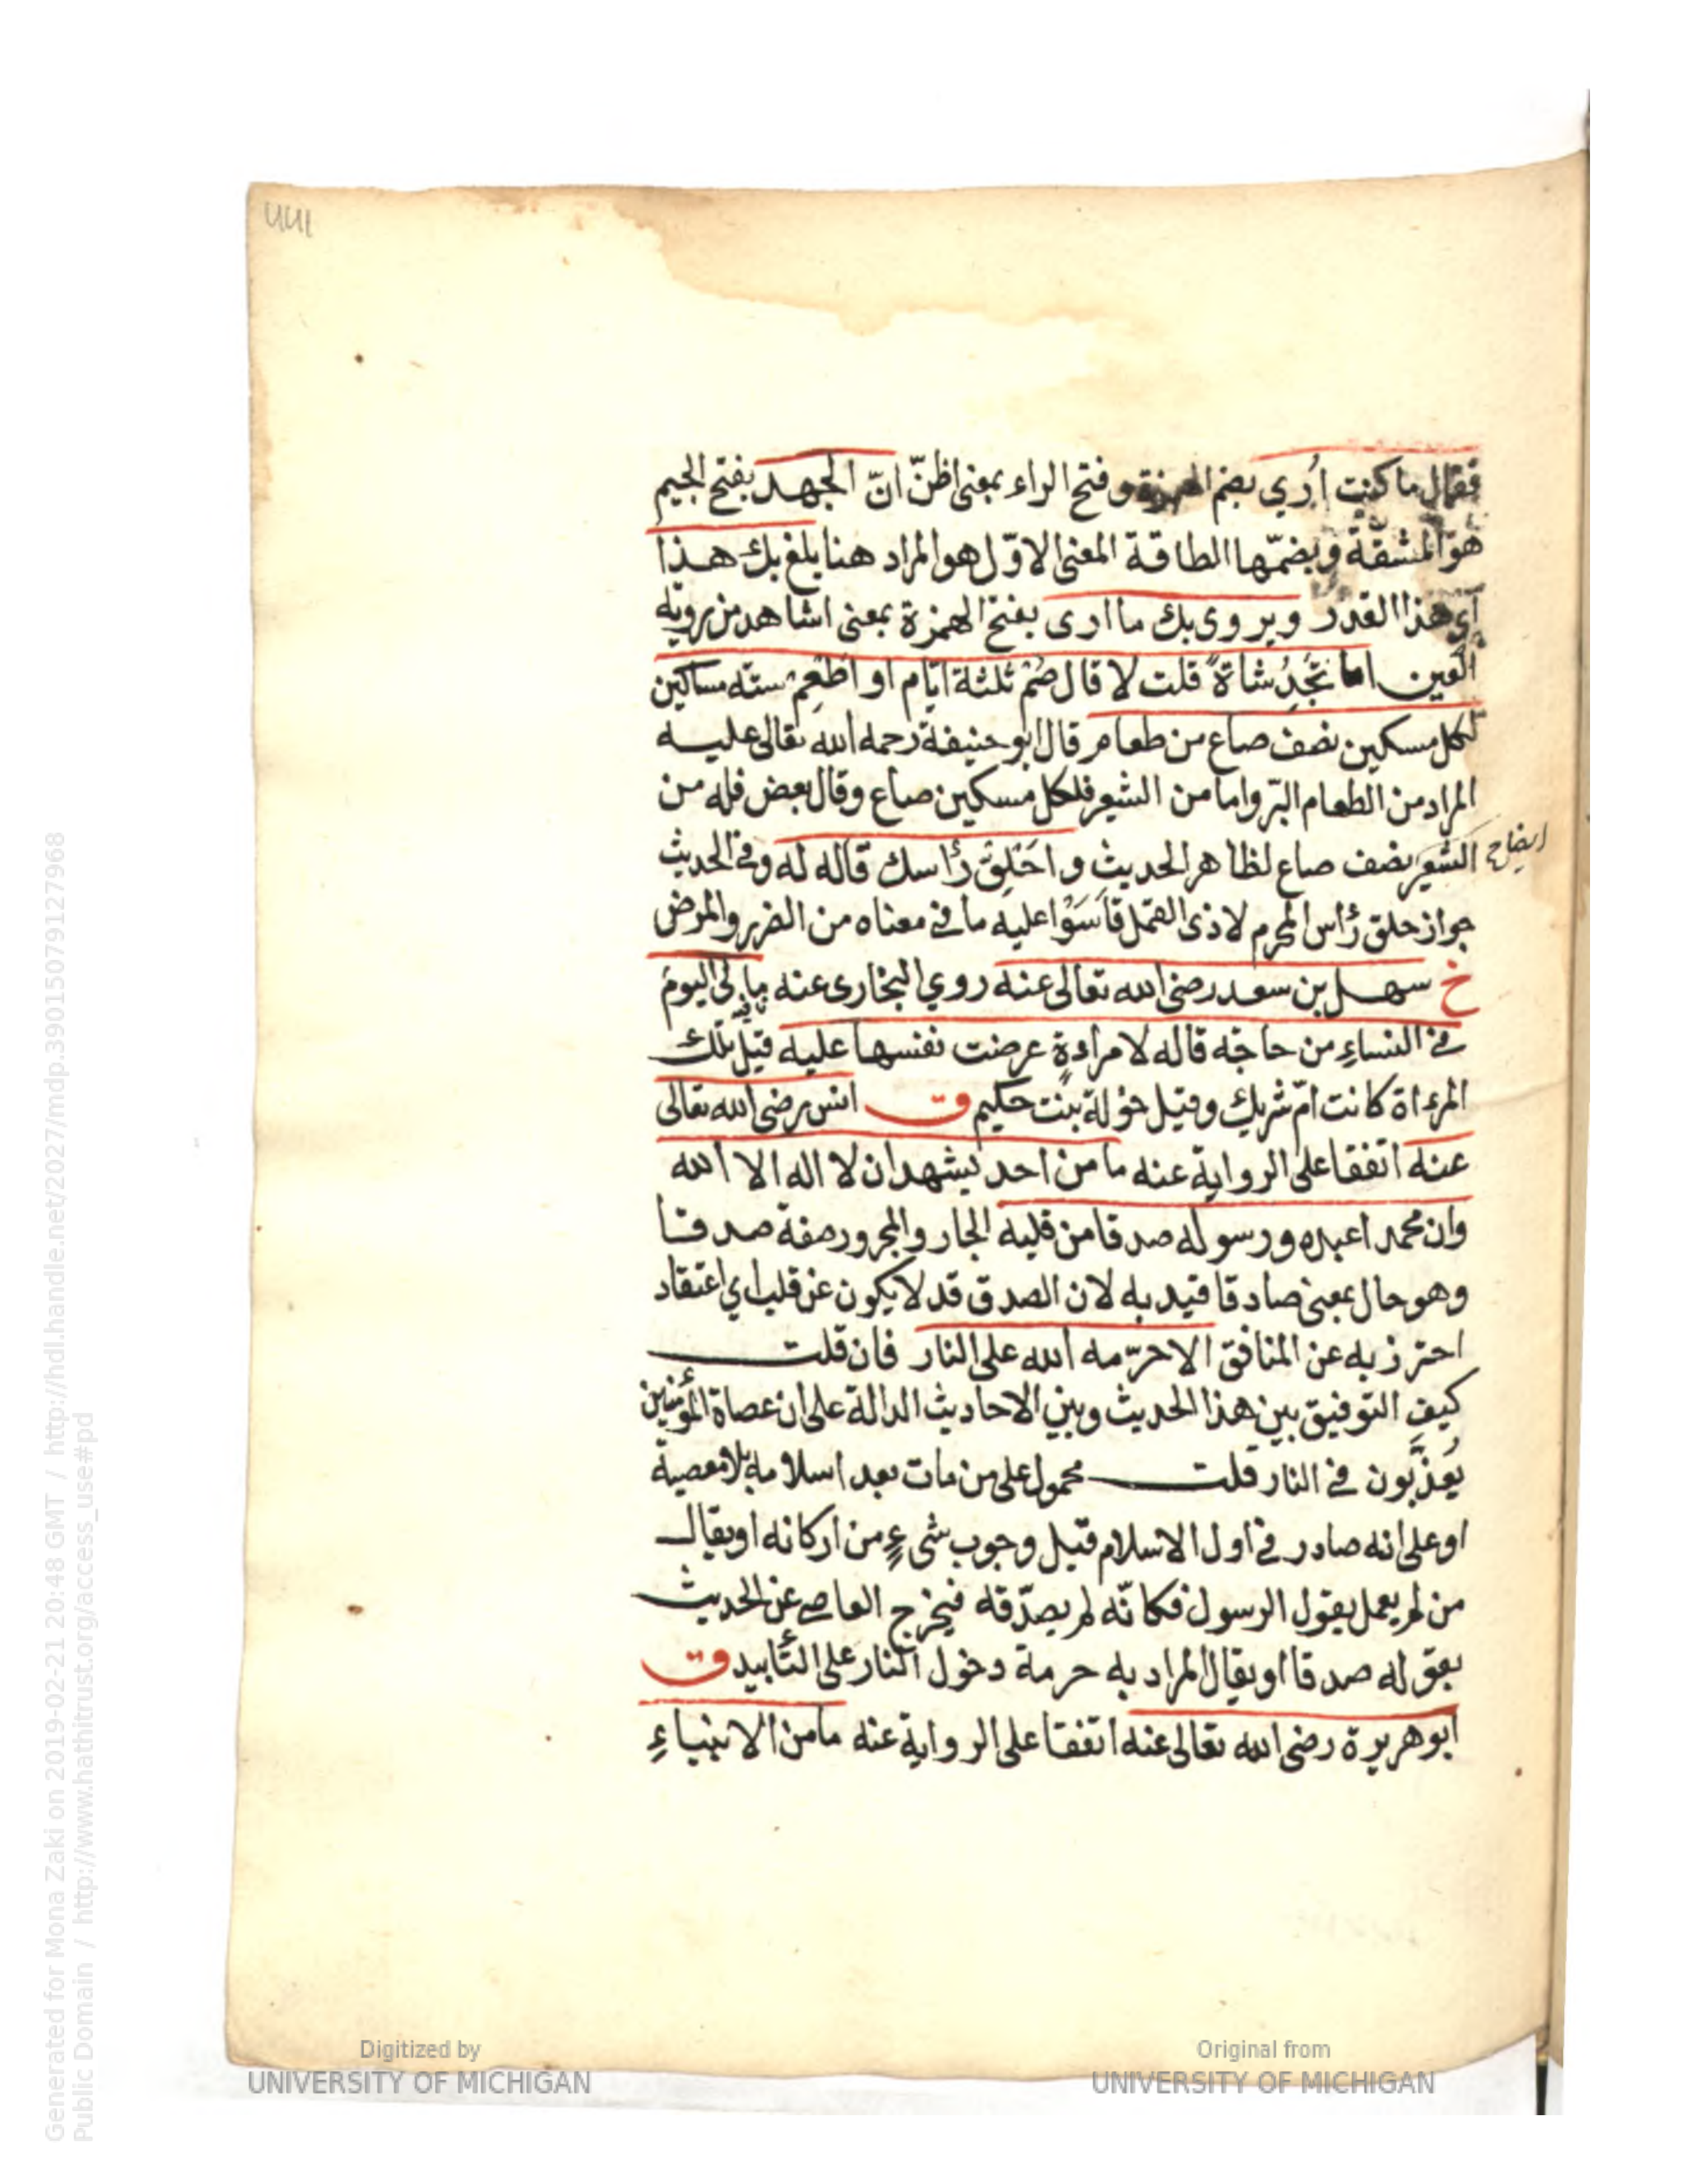 فقال ما كنت اُرٰي بضم الهمزة وفتح الراء بمعنى اظنّ انّ الجهد بفتح الجيم
هو المشقّة وبضمّها الطاقة المعنى الاوّل هو المراد هنا يلغ بك هذا
اى هذا القدر ويروى بك ما ارى بفتح الهمزة بمعنى اشاهد من روية
العين اما تجُدِ شاةً قلت لا قال صُمْ ثلثة ايّام او اَطْعِم ستة مساكين
لكل مسكين نصف صاع من طعام قال ابو حنيفة رحمه الله تعالى عليه
المراد من الطعام البرّ واما من الشعير فلكل مسكين صاع وقال بعض فله من
الشعير نصف صاع لظاهر الحديث واحْلِقْ رأسك قاله له وفى الحديث
ايضاح
جواز حلق رأس المحرم لاذى القمل قاسَوْا عليه ما فى معناه من الضرر والمرض
خ سهل بن سعد رضى الله تعالى عنه روي البخارى عنه ما لى اليوم
فى النساءِ من حاجة قاله لامراءة عرضت نفسها عليه قيل تلك
المرءاة كانت امّ شريك وقيل خولة بنت حكيم ق انس رضى الله تعالى
عنه اتفقا على الرواية عنه ما من احد يشهد ان لا اله الا الله
وان محمدا عبده ورسوله صدقا من قلبه الجار والمجرور صفة صدقا
وهو حال بمعنى صادقا قيد به لان الصدق قد لا يكون عن قلب اي اعتقاد
احترز به عن المنافق الا حرّمه الله على النار فان قلت
كيف التوفيق بين هذا الحديث وبين الاحاديث الدالة على ان عصاة المؤمنين
يُعذَّبون فى النار قلت محمول على من مات بعد اسلامه بلا معصية
او على انه صادر فى اول الاسلام قبل وجوب شىءٍ من اركانه او يقال
من لم يعمل بقول الرسول فكانّه لم يصدّقه فيخرج العاصى عن الحديث
بقوله صدقا او يقال المراد به حرمة دخول النار على التأبيد ق
ابو هريرة رضى الله تعالى عنه اتفقا على الرواية عنه ما من الانبياءِ
Digitized by
UNIVERSITY OF MICHIGAN
Original from
UNIVERSITY OF MICHIGAN
Generated for Mona Zaki on 2019-02-21 20:48 GMT / http://hdl.handle.net/2027/mdp.39015079127968
Public Domain / http://www.hathitrust.org/access_use#pd